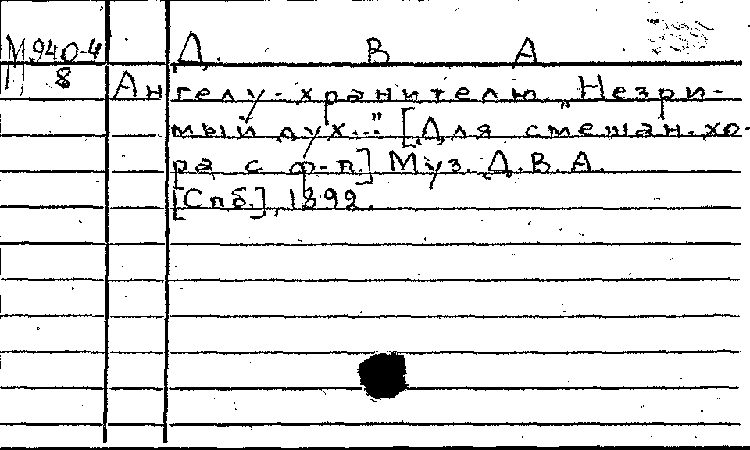 М 940-4
8
Д. В А
Ангелу-хранителю „Незри-
мый дух..." [Для смешан. хо-
ра с ф-п.] Муз. Д. В. А.
[Спб.], 1892.